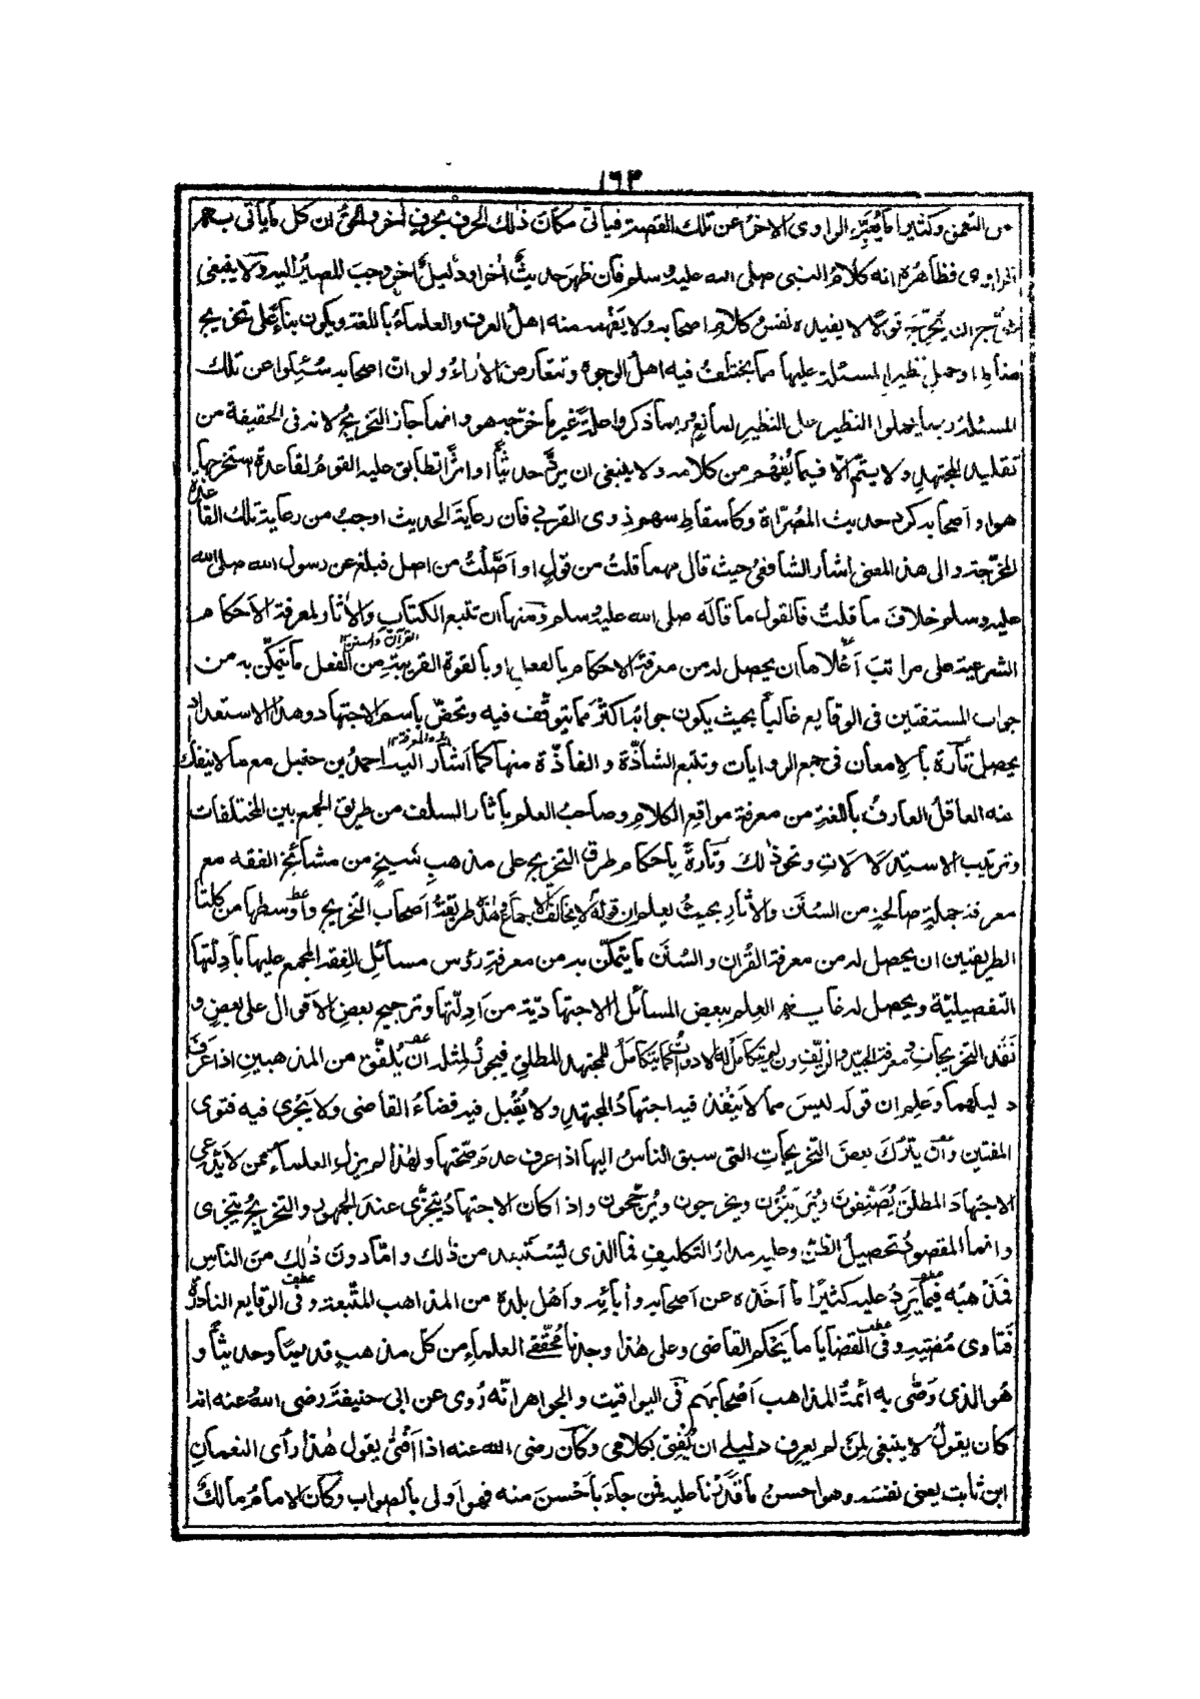 ١٦٣
من التعمق وكثيرا ما يُعَبِّر الراوى الاخرُ عن تلك القصة فيأتى مكانَ ذٰلك الحرف بحرفٍ اٰخر والحقُّ ان كل ما يأتى به
الراوى فظاهرُه انه كلامُ النبى صلى الله عليه وسلم فان ظهرَ حديثٌ اٰخر او دليلٌ اٰخر وجبَ المصيرُ اليه ولا ينبغى
لمُخَرِّجٍ ان يُخَرِّجَ قولًا لا يفيده نفسُ كلام اصحابه ولا يَفْهمه منه اهلُ العرف والعلماءُ باللغة ويكون بناءً على تخريج
مناطٍ او حملِ نظيرِ المسئلة عليها مما يختلفُ فيه اهلُ الوجوه وتتعارض الاٰراءُ ولو انّ اصحابه سُئِلوا عن تلك
المسئلة ربما يحملوا النظير على النظيرِ لمانعٍ وربما ذكروا علةً غيرَ ما خرّجه هو وانما جاز التخريجُ لانه فى الحقيقة من
تقليد المجتهدِ ولا يتمّ الّا فيما يُفْهَم من كلامه ولا ينبغى ان يردَّ حديثًا او اثرًا تطابق عليه القومُ لقاعدة استخرجها
هو او اَصحابه كردِ حديث المُصَرّاة وكاسقاطِ سهم ذوى القربى فان رعايةَ الحديث اوجبُ من رعاية تلك القاعدة
المُخَرَّجة والى هذ المعنى اشار الشافعىُ حيث قال مهما قلتُ من قولٍ او اَصَّلْتُ من اصل فبلغ عن رسول الله صلى الله
عليه وسلم خلافَ ما قلتُ فالقول ما قاله صلى الله عليه وسلم ومنها ان تتبع الكتابِ والاٰثار لمعرفة الاَحكام
الشرعية على مراتبَ اَعْلاها ان يحصل له من معرفة الاحكام بالفعل او بالقوة القريبة من الفعل ما يتمكّن به من
القرآن والسنن ١٢
جواب المستفتين فى الوقايع غالباً بحيث يكون جوابُه اكثرَ مما يتوقّف فيه وتخصّ باسم الاجتهاد وهذا الاستعداد
يحصل تارة بالاِمعان فى جمع الروايات وتتبع الشاذّة والفاذّة منها كما اَشار اليه احمدُ بن حنبل مع ما لا ينفكّ
منه العاقلُ العارفُ باللغةِ من معرفة مواقعِ الكلام وصاحبُ العلم باٰثار السلف من طريق الجمع بين المختلفات
وترتيب الاستدلالاتِ ونحو ذٰلك وتارةً باحكام طرق التخريج على مذهبِ شيخٍ من مشائخ الفقه مع
معرفة جملةٍ صالحةٍ من السُنَن والاٰثارِ بحيثُ يعلم ان قولَه لا يخالف الاجماعَ وهٰذه طريقةُ اَصحاب التخريج واَوسطها من كلتا
الطريقتين ان يحصل له من معرفة القُراٰن والسُنَن ما يتمكّن به من معرفةِ رؤس مسائلِ الفِقه المجمع عليها باَدِلّتها
التفصيليّة ويحصل له غاية العِلم ببعض المسائل الاجتهاديّة من اَدِلّتها وترجيح بعضِ الاَقوال على بعضٍ و
نَقْدِ التخريجاتِ ومعرفةِ الجيّدِ والزيّفِ وان لم يتكامل له الادوات كما يتكاملُ للمجتهد المطلقِ فيجوزُ لمثله ان يُلفّق من المذهبين اذا عَرَفَ
دليلَهما وعَلِم ان قوله ليسَ مما لا يَنفُذ فيه اجتهادُ المجتهدِ ولا يُقْبل فيه قضاءُ القاضى ولا يَجْرى فيه فتوى
المفتين وان يتركَ بعضَ التخريجاتِ التى سبق الناسُ اليها اذا عرف عدمَ صحّتها ولهٰذا لم يزل العلماءُ ممن لا يَدّعى
الاجتهادَ المطلقَ يُصَنِّفونَ ويُرَتِّبُون ويخرجون ويُرجّحون واذا كان الاجتهادُ يتجزّى عند الجمهور والتخريجُ يتجزى
وانما المقصودُ تحصيلُ الظنّ وعليه مدارُ التكليفِ فما الذى يُسْتَبعد من ذٰلك وامّا دون ذٰلك منَ الناس
فمَذْهبه فيما يَرِدُ عليه كثيرًا ما اَخذه عن اَصحابه واٰبائه واَهل بلده من المذاهب المتّبعة وفى الوقايع النادرة
فتاوى مُفْتِيه وفى القضايا ما يَحْكم القاضى وعلى هٰذا وجدنا مُحقّقى العلماءِ من كلّ مذهبٍ قديمًا وحديثًا و
هُو الذى وَصّى به ائمةُ المذاهب اَصْحابَهم فى اليواقيت والجواهر انّه رُوى عن ابى حنيفةَ رضى اللهُ عنه انه
كان يقولُ لا ينبغى لمن لم يعرف دليلى ان يُفْتى بكلامى وكان رضى الله عنه اذا اَفْتٰى يقول هٰذا رأى النعمانِ
ابن ثابت يعنى نفسَه وهو احسنُ ما قدَّرْنا عليه فمن جاءَ باَحْسنَ منه فهو اَولى بالصواب وكان الامامُ مالكٌ